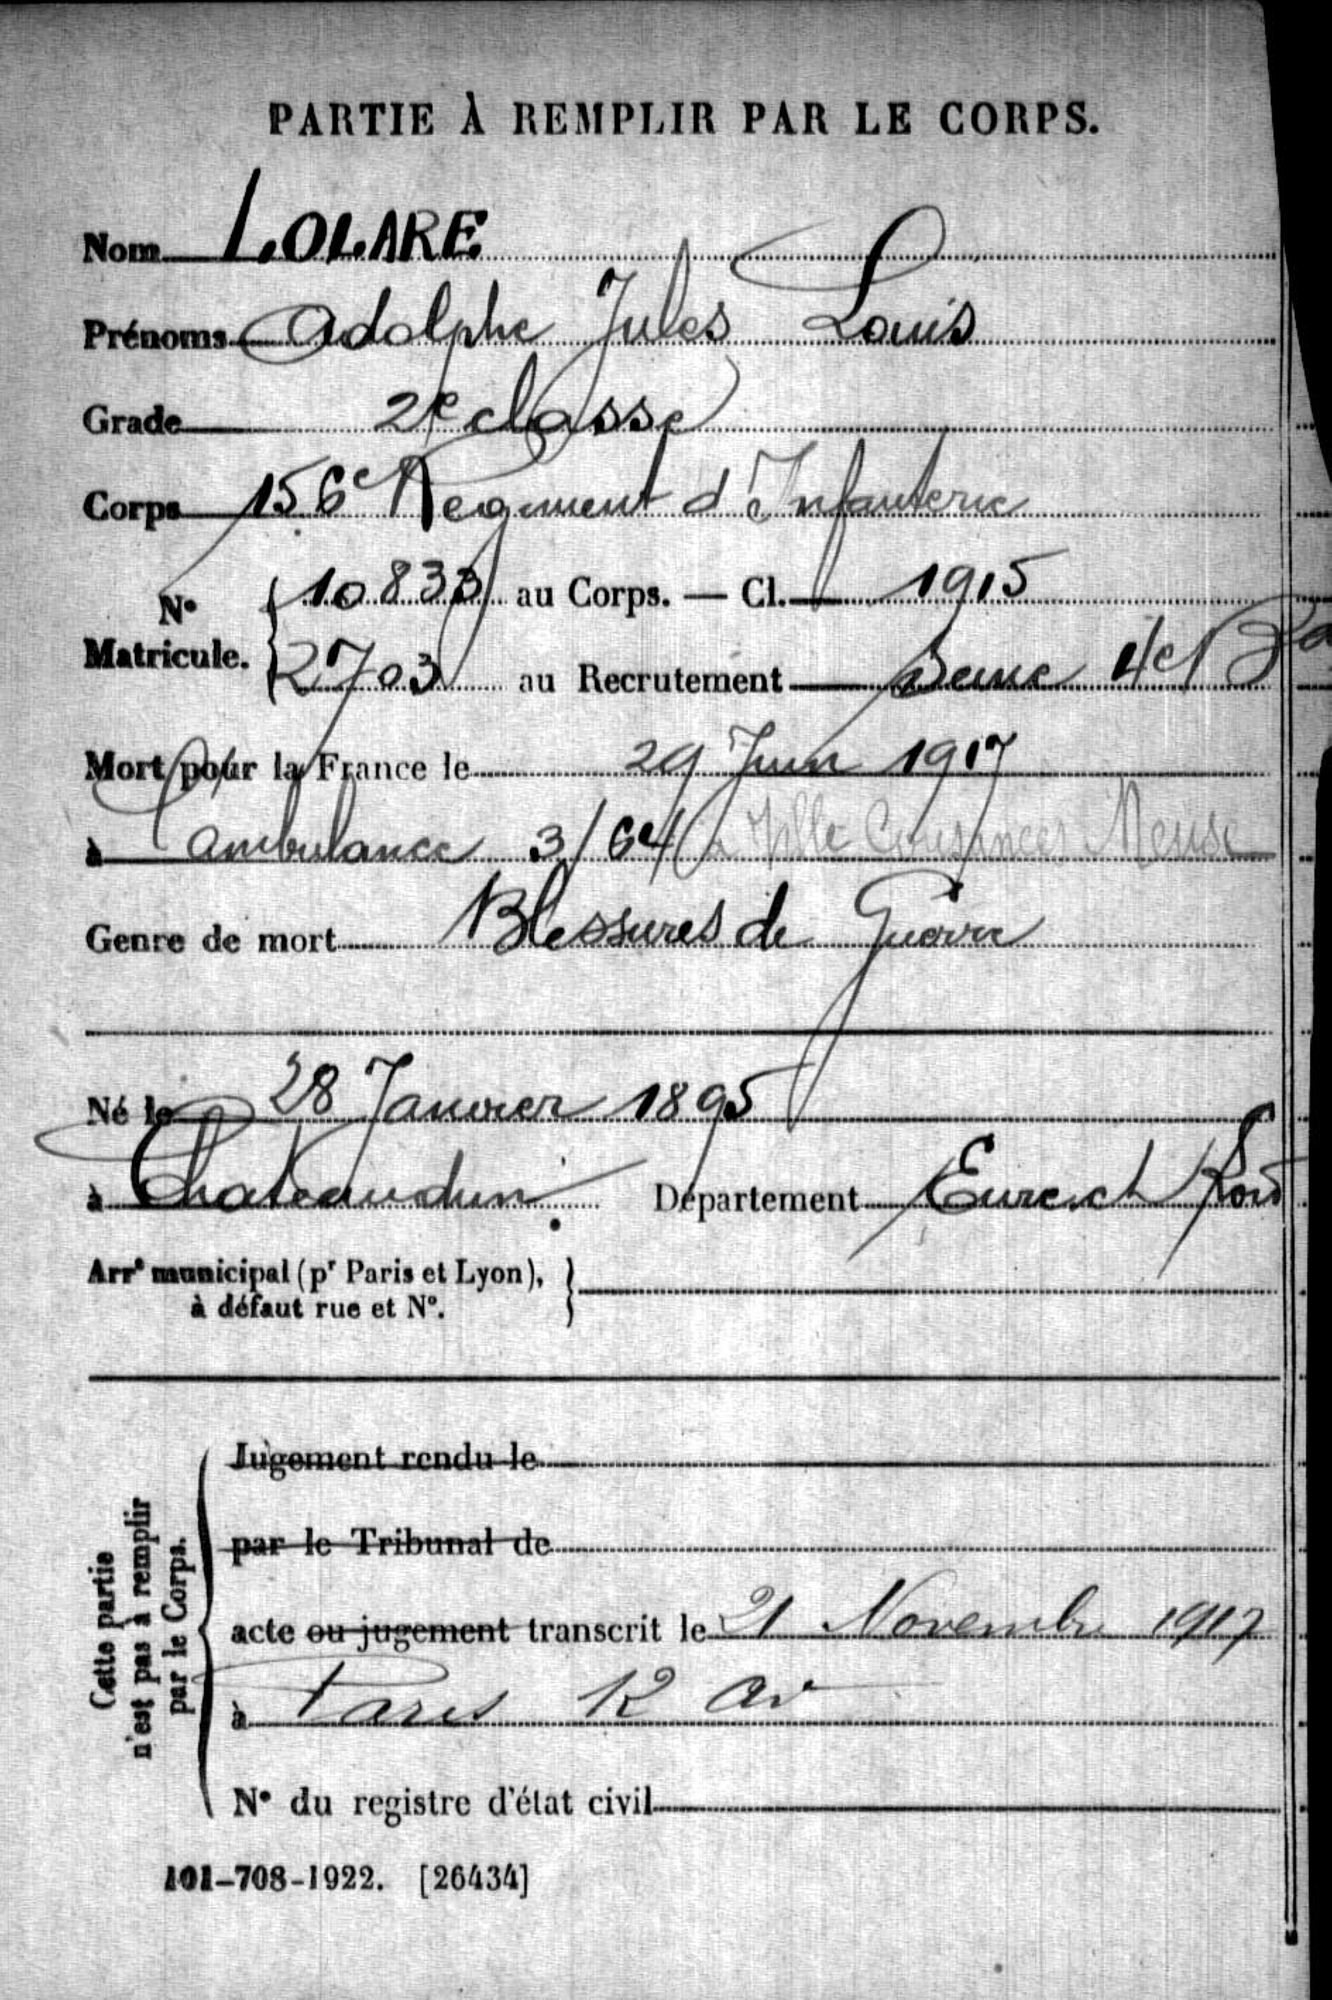 PARTIE À REMPLIR PAR LE CORPS.
Nom LOLARE
Prénoms Adolphe Jules Louis
Grade 2e classe
Corps 156e Régiment d'Infanterie
N° Matricule. 10833 au Corps. — Cl. 1915
2703 au Recrutement Seine 4e B
Mort pour la France le 29 Juin 1917
à l'ambulance 3/64 Cousances Meuse
Genre de mort Blessures de Guerre
Né le 28 Janvier 1895
à Chateaudun Département Eure et Loir
Arrt municipal (pr Paris et Lyon),
à défaut rue et N°.
Cette partie
n'est pas à remplir
par le Corps.
Jugement rendu le
par le Tribunal de
acte ou jugement transcrit le 21 Novembre 1917
à Paris 12 ar
N° du registre d'état civil
101-708-1922. [26434]